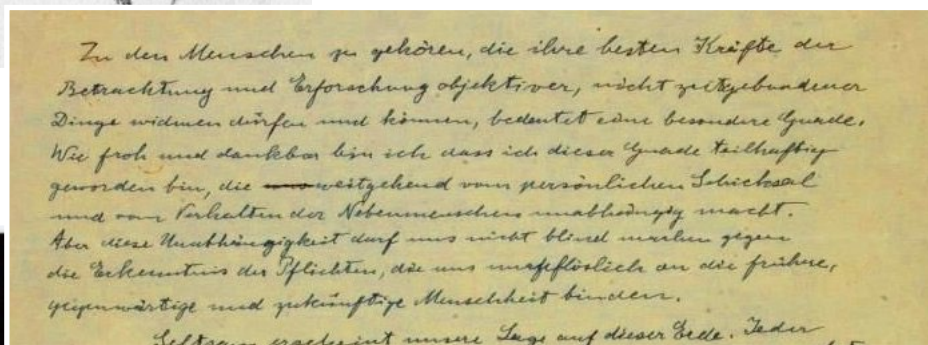 Zu den Menschen zu gehören, die ihre besten Kräfte der
Betrachtung und Erforschung objektiver, nicht zeitgebundener
Dinge widmen dürfen und können, bedeutet eine besondere Gnade.
Wie froh und dankbar bin ich dass ich dieser Gnade teilhaftig
geworden bin, die weitgehend vom persönlichen Schicksal
und vom Verhalten der Nebenmenschen unabhängig macht.
Aber diese Unabhängigkeit darf uns nicht blind machen gegen
die Erkenntnis der Pflichten, die uns unauflöslich an die frühere,
gegenwärtige und zukünftige Menschheit binden.
Seltsam erscheint unsere Lage auf dieser Erde. Jeder